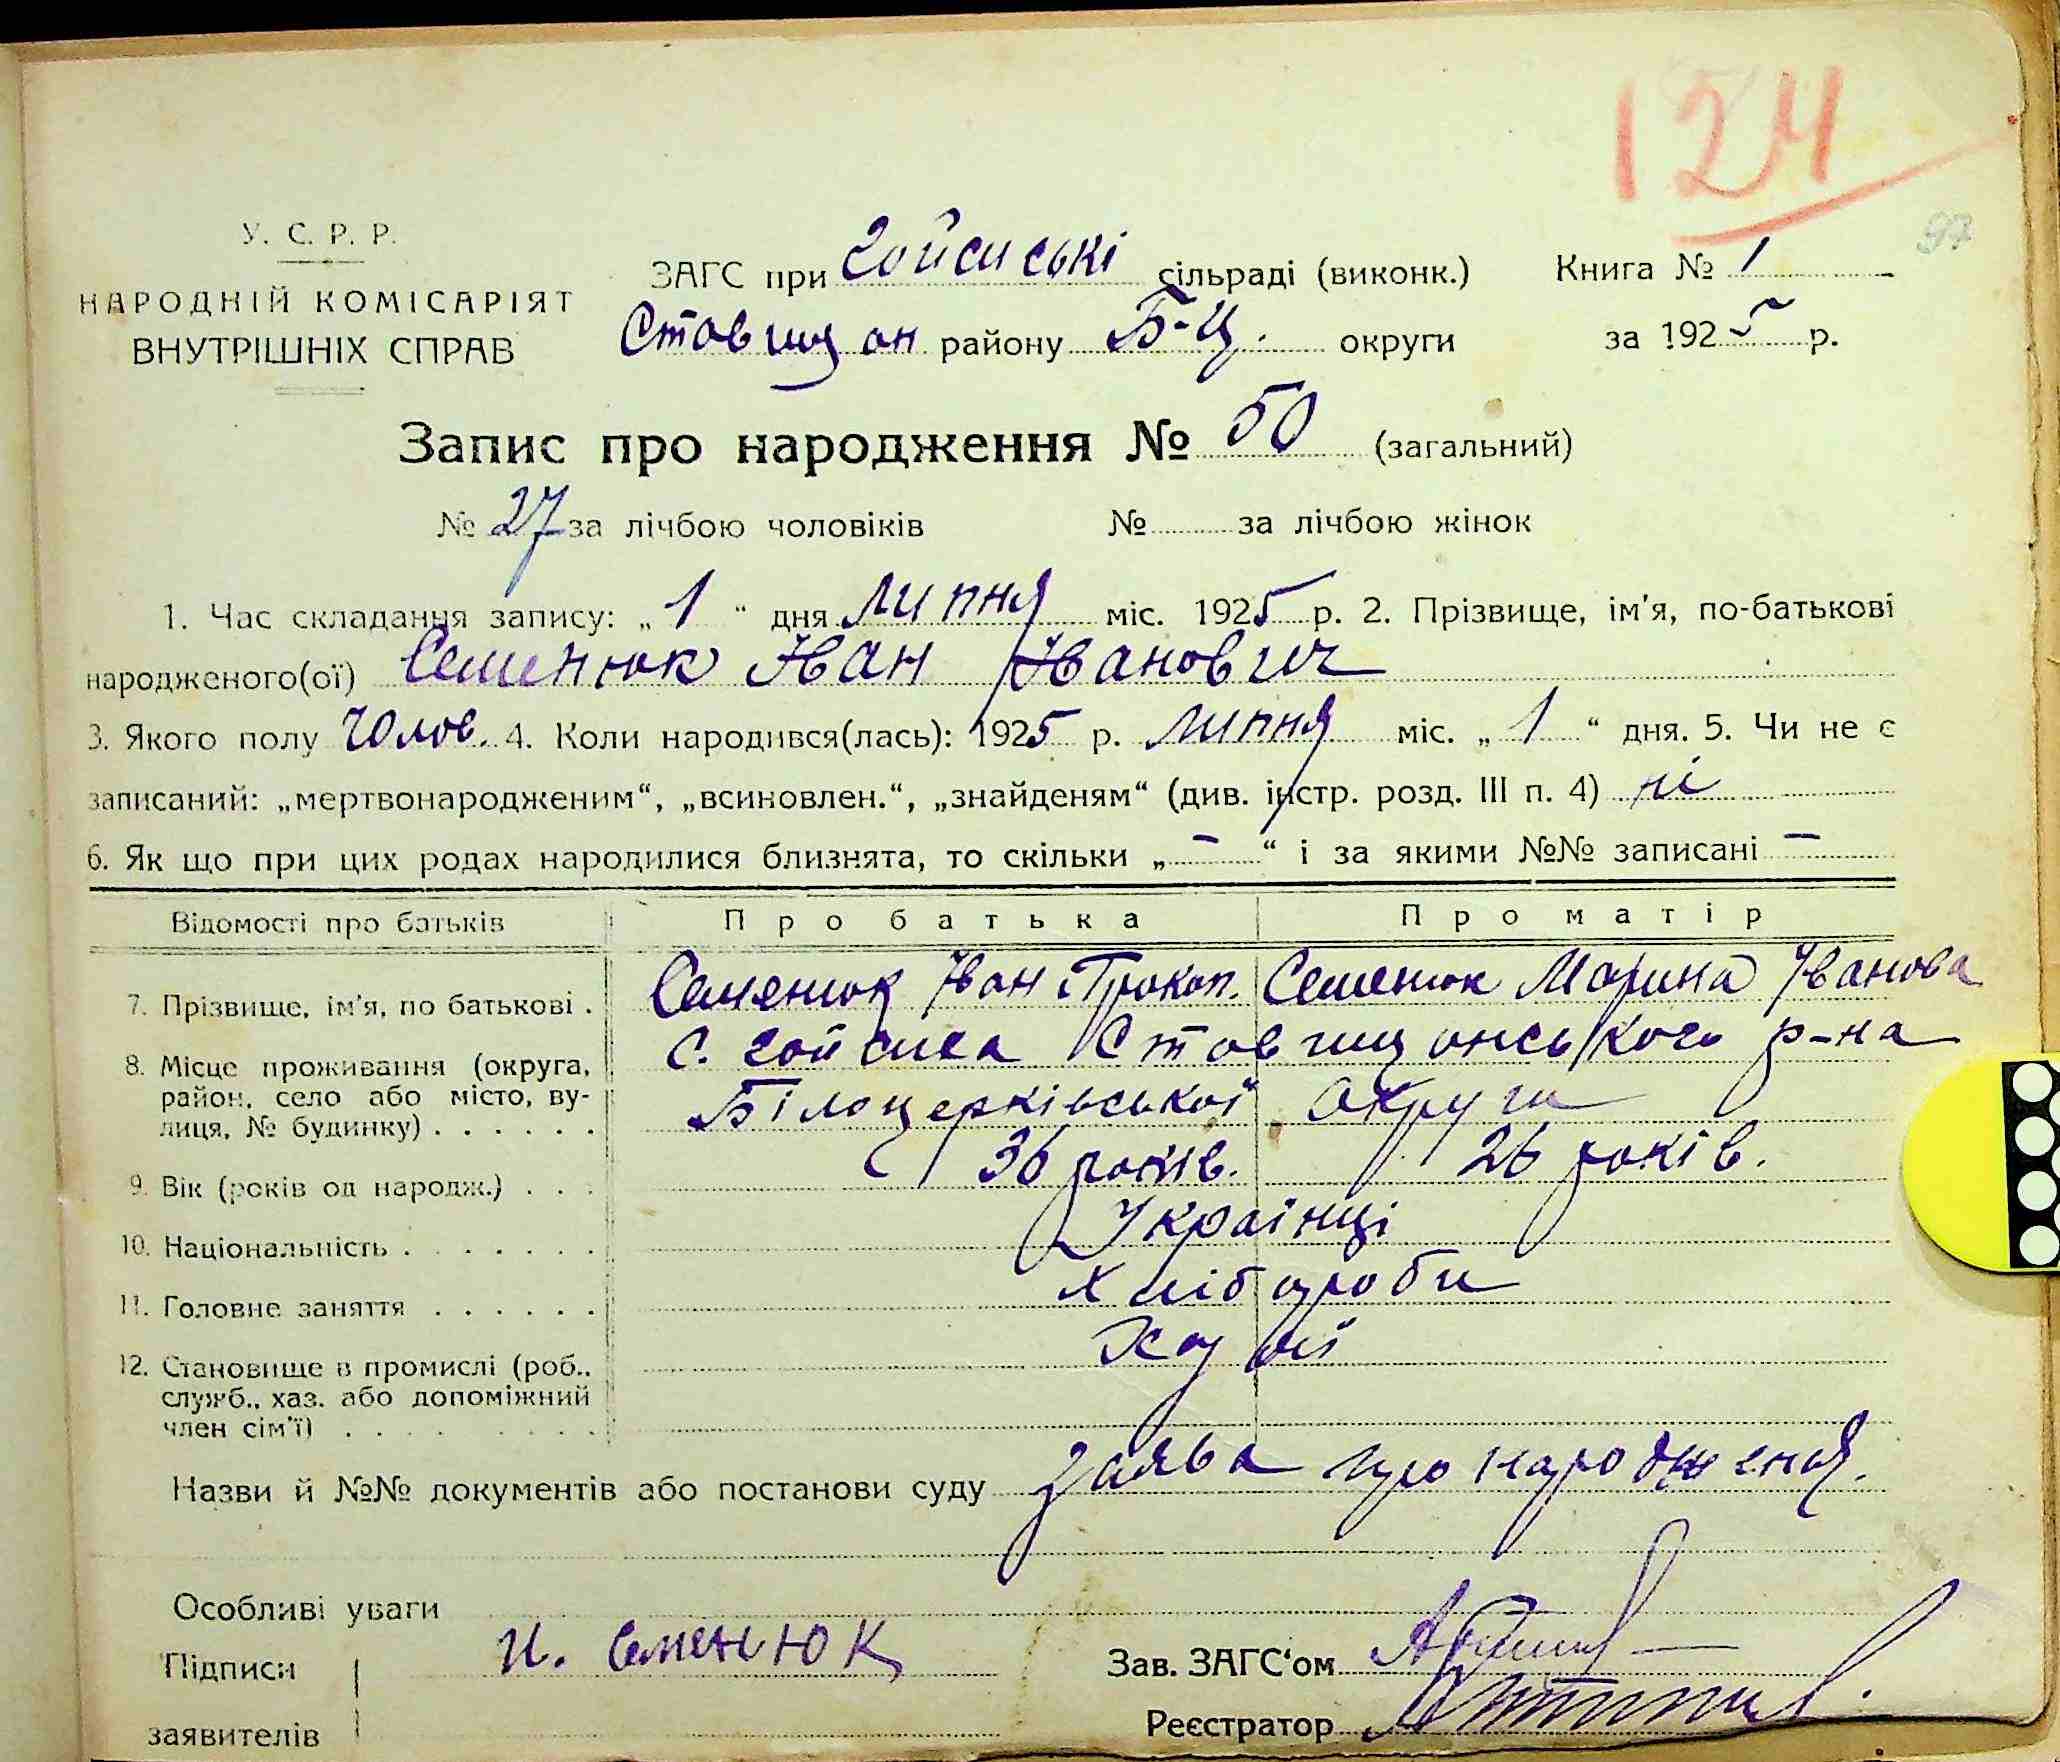 124
97
У. С. Р. Р.
НАРОДНІЙ КОМІСАРІЯТ
ВНУТРІШНІХ СПРАВ
ЗАГС при Гойсиські сільраді (виконк.) Книга № 1
Ставищан району Б-Ц. округи за 1925 р.
Запис про народження № 50 (загальний)
№ 27 за лічбою чоловіків № за лічбою жінок
1. Час складання запису: „ 1 “ дня липня міс. 1925 р. 2. Прізвище, ім'я, по-батькові
народженого(ої) Семенюк Іван Іванович
3. Якого полу Чолов. 4. Коли народився(лась): 1925 р. липня міс. „ 1 “ дня. 5. Чи не є
записаний: „мертвонародженим“, „всиновлен.“, „знайденям“ (див. інстр. розд. III п. 4) ні
6. Як що при цих родах народилися близнята, то скільки „ – “ і за якими №№ записані –
Відомості про батьків Про батька Про матір
7. Прізвище, ім'я, по батькові . Семенюк Іван Прокоп. Семенюк Марина Іванова
8. Місце проживання (округа, с. Гойсиха Ставищанського р-на
район, село або місто, ву- Білоцерківської округи
лиця, № будинку) . . . . . .
9. Вік (років од народж.) . . . 36 років. 26 років.
10. Національність . . . . . . . Українці
11. Головне заняття . . . . . . Хлібороби
12. Становище в промислі (роб.,
служб., хаз. або допоміжний
член сім'ї) . . . . . . . . .
Назви й №№ документів або постанови суду заява про народження.
Особливі уваги
Підписи И. Семенюк Зав. ЗАГС'ом
заявителів Реєстратор